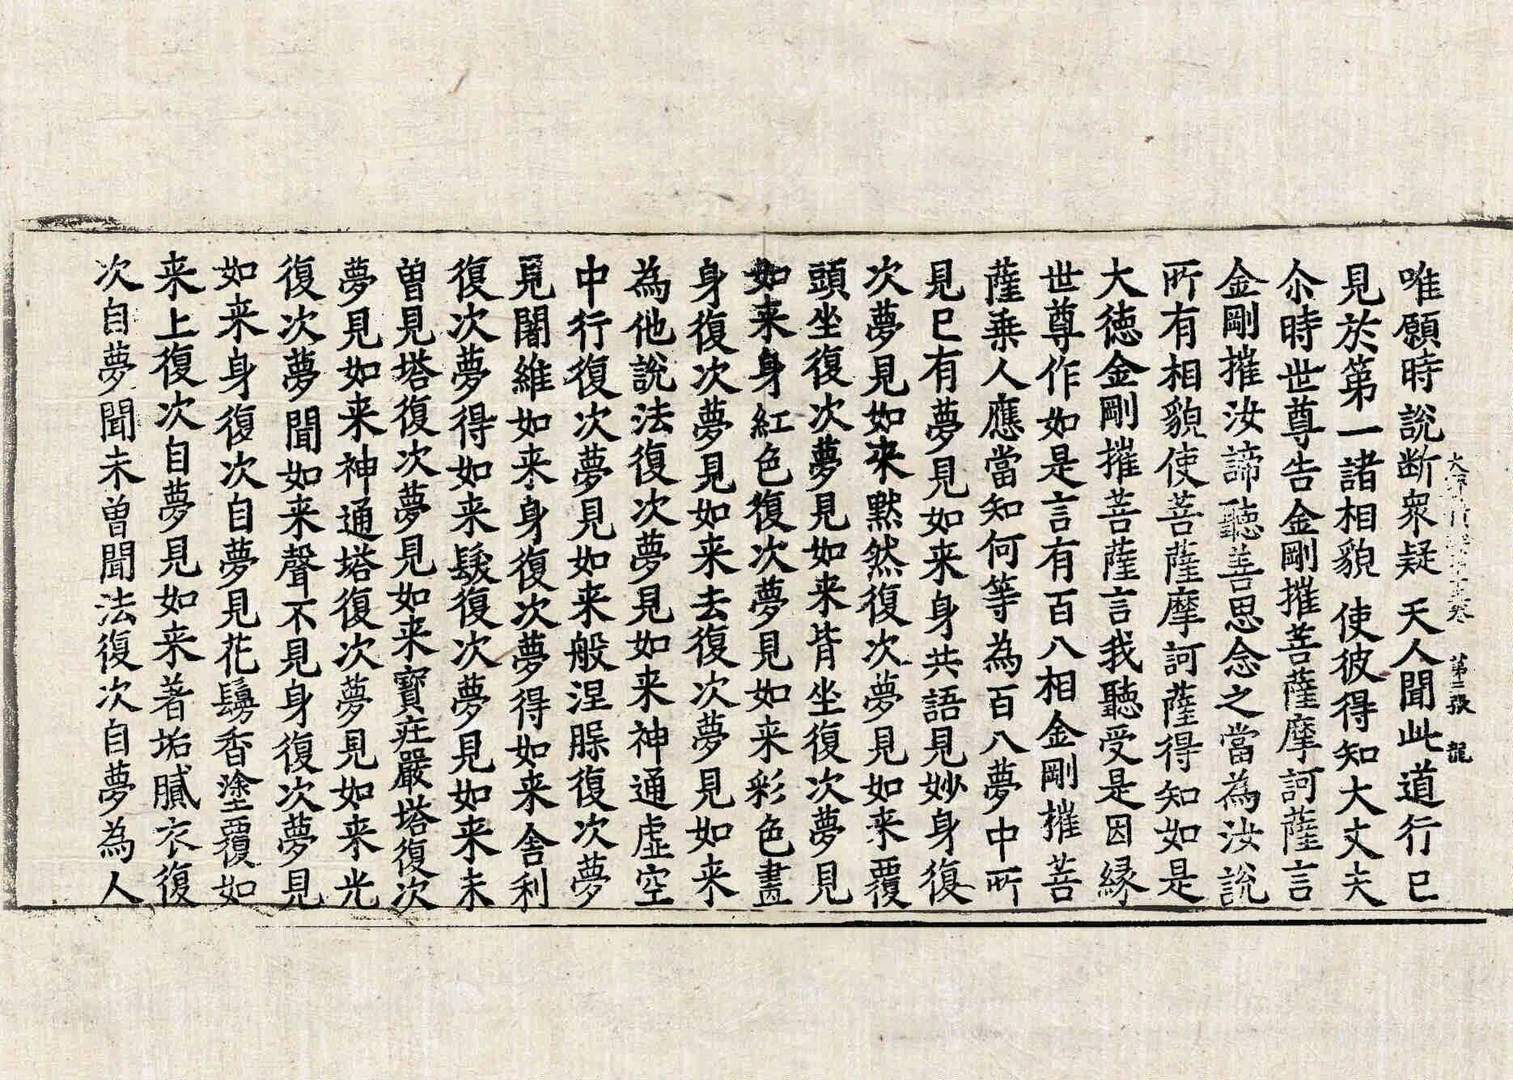 第三張 龍
唯願時說断衆疑 天人聞此道行已
見於第一諸相貌 使彼得知大丈夫
尒時世尊告金剛摧菩薩摩訶薩言
金剛摧汝諦聽善思念之當為汝說
所有相貌使菩薩摩訶薩得知如是
大徳金剛摧菩薩言我聽受是因縁
世尊作如是言有百八相金剛摧菩
薩乗人應當知何等為百八夢中所
見已有夢見如来身共語見妙身復
次夢見如来黙然復次夢見如来覆
頭坐復次夢見如来背坐復次夢見
如来身紅色復次夢見如来彩色畫
身復次夢見如来去復次夢見如来
為他說法復次夢見如来神通虛空
中行復次夢見如来般涅槃復次夢
見闍維如来身復次夢得如来舍利
復次夢得如来髮復次夢見如来未
曽見塔復次夢見如来寶莊嚴塔復次
夢見如来神通塔復次夢見如来光
復次夢聞如来聲不見身復次夢見
如来身復次自夢見花鬘香塗覆如
来上復次自夢見如来著垢膩衣復
次自夢聞未曽聞法復次自夢為人